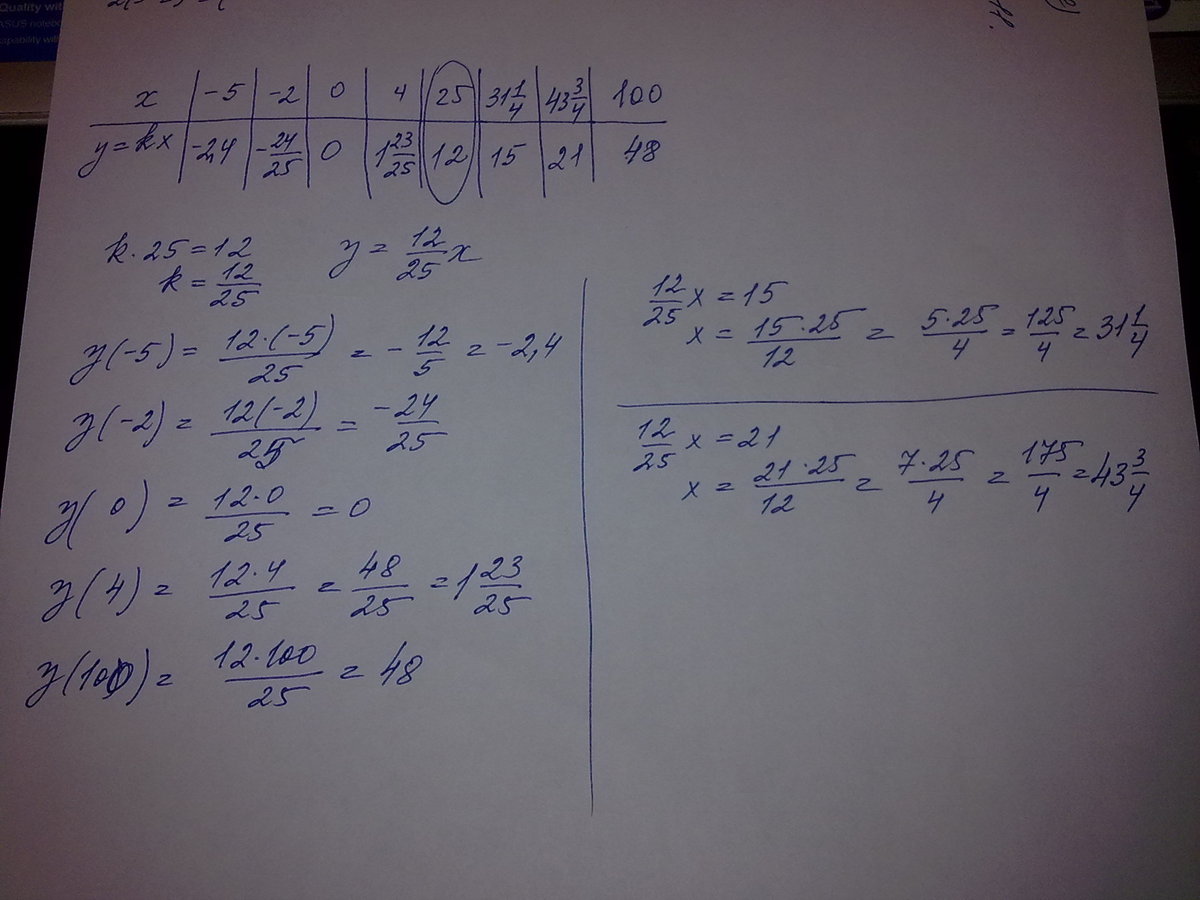 Quality with
ASUS notebo
apability with
x | -5 | -2 | 0 | 4 | 25 | 31 1/4 | 43 3/4 | 100
y=kx | -2,4 | -24/25 | 0 | 1 23/25 | 12 | 15 | 21 | 48
k·25=12
k=12/25
y=12/25 x
y(-5)= 12·(-5)/25 = -12/5 = -2,4
y(-2)= 12(-2)/25 = -24/25
y(0) = 12·0/25 = 0
y(4) = 12·4/25 = 48/25 = 1 23/25
y(100)= 12·100/25 = 48
12/25 x = 15
x = 15·25/12 = 5·25/4 = 125/4 = 31 1/4
12/25 x = 21
x = 21·25/12 = 7·25/4 = 175/4 = 43 3/4